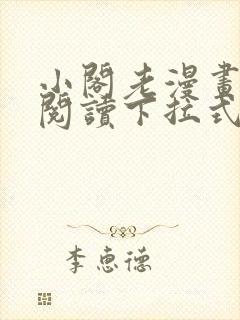 小閣老漫畫
閱讀下拉式
李惠德